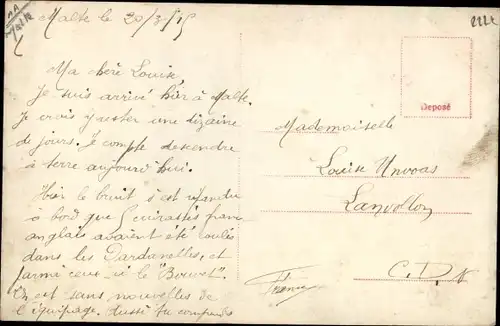 Malte le 20/3/15
Ma chère Louise,
Je suis arrivé hier à Malte.
Je crois y rester une dizaine
de jours. Je compte descendre
à terre aujourd'hui.
Hier le bruit s'est répandu
à bord que 5 cuirassés franco
anglais avaient été coulés
dans les Dardanelles, et
parmi ceux-ci le "Bouvet".
On est sans nouvelles de
l'équipage. Aussi tu comprends
Deposé
Mademoiselle
Louise
Lanvollon
C. D. N